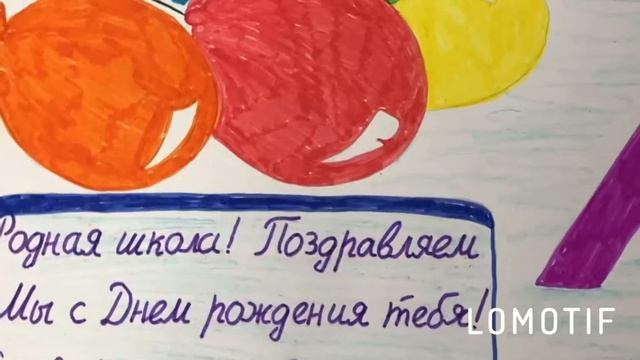 Родная школа! Поздравляем
Мы с Днем рождения тебя!
LOMOTIF